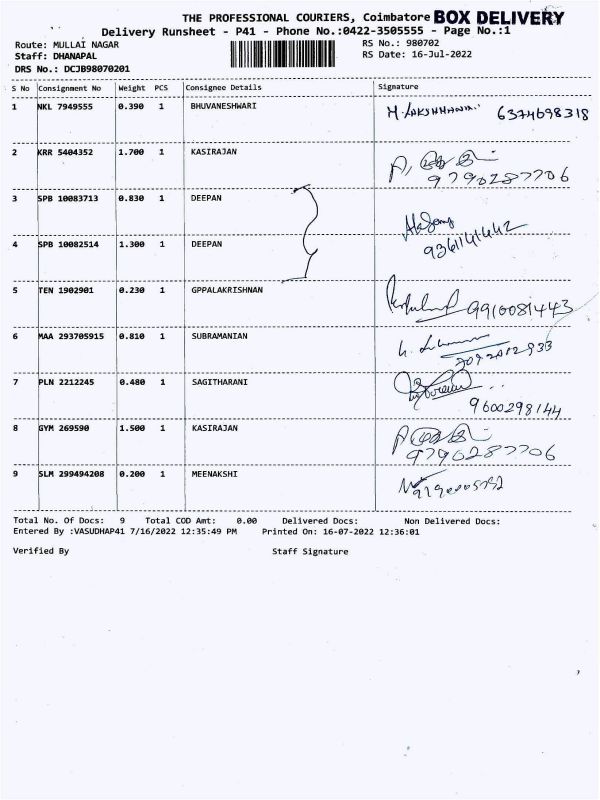 THE PROFESSIONAL COURIERS, Coimbatore BOX DELIVERY
Delivery Runsheet - P41 - Phone No.:0422-3505555 - Page No.:1
Route: MULLAI NAGAR RS No.: 980702
Staff: DHANAPAL RS Date: 16-Jul-2022
DRS No.: DCJB98070201
S No Consignment No Weight PCS Consignee Details Signature
1 NKL 7949555 0.390 1 BHUVANESHWARI 6374698318
2 KRR 5404352 1.700 1 KASIRAJAN
9790287706
3 SPB 10083713 0.830 1 DEEPAN
4 SPB 10082514 1.300 1 DEEPAN
5 TEN 1902901 0.230 1 GPPALAKRISHNAN 9910081443
6 MAA 293705915 0.810 1 SUBRAMANIAN
7 PLN 2212245 0.480 1 SAGITHARANI
9600298144
8 GYM 269590 1.500 1 KASIRAJAN
9790287706
9 SLM 299494208 0.200 1 MEENAKSHI
Total No. Of Docs: 9 Total COD Amt: 0.00 Delivered Docs: Non Delivered Docs:
Entered By :VASUDHAP41 7/16/2022 12:35:49 PM Printed On: 16-07-2022 12:36:01
Verified By Staff Signature